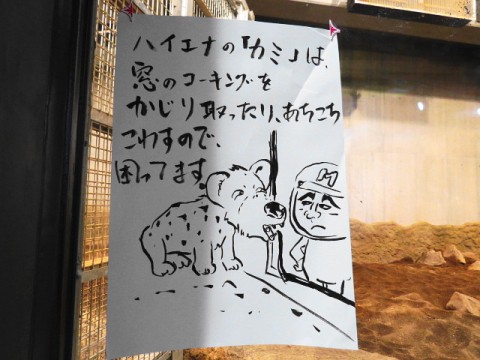 ハイエナの「カミ」は、
窓のコーキングを
かじり取ったり、あちこち
こわすので、
困ってます。